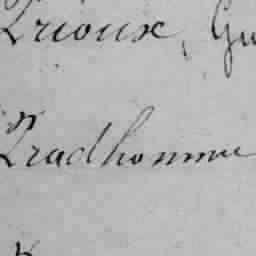 Prioux, Gu
Pradhomme